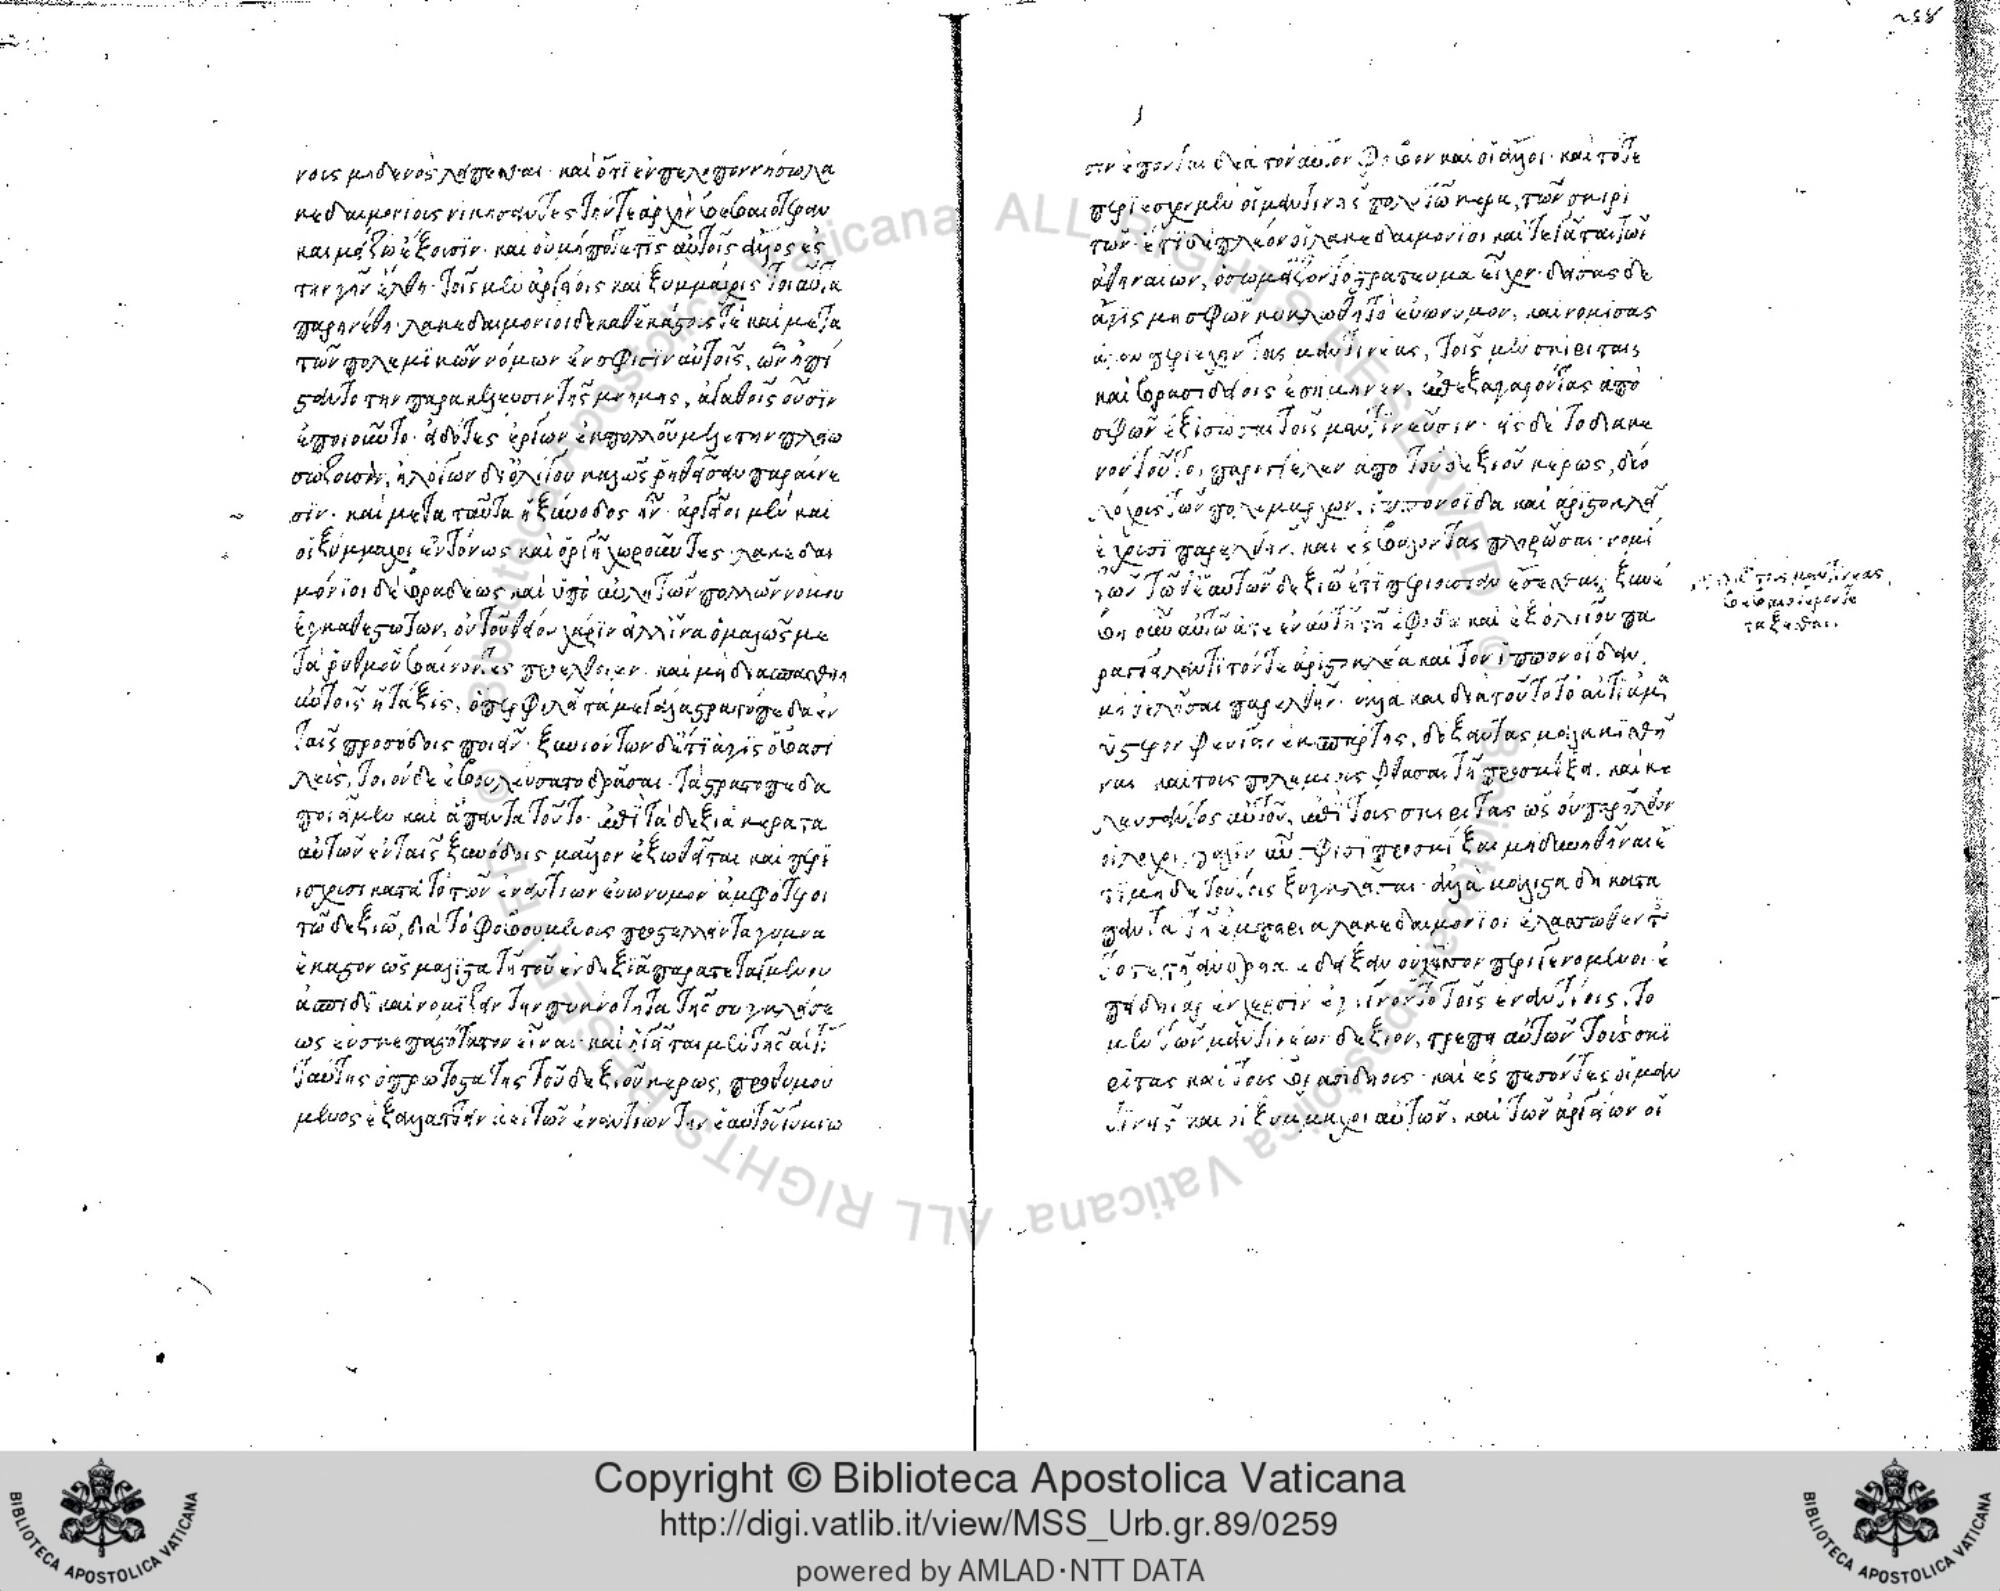 νους μηδενὸς λείπεσθαι· καὶ ὅτι ἐν πελοποννήσω λα
κεδαιμονίους νικήσαντες τήν τε ἀρχὴν βεβαιοτέραν
και μείζω ἕξουσιν· καὶ οὐ μή ποτέ τις αὐτοῖς ἄλλος ἐς
την γῆν ἔλθη· τοῖς μὲν ἀργείοις καὶ ξυμμάχοις τοιαῦτα
παρηνέθη· λακεδαιμόνιοι δε καθ' εκάστους τὲ καὶ μετα
τῶν πολεμικῶν νόμων ἐν σφίσιν αὐτοῖς, ὧν ἠπί
σταντο την παρακέλευσιν τῆς μνήμης, ἀγαθοῖς οὖσιν
ἐποιοῦντο· εἰδότες ἔργων ἐκ πολλοῦ μελέτην πλείω
σώζουσαν, ἢ λόγων δι' ὀλίγου καλῶς ῥηθεῖσαν παραίνε
σιν· καὶ μετα ταῦτα ἡ ξύνοδος ἦν· ἀργεῖοι μὲν καὶ
οἱ ξύμμαχοι ἐντόνως καὶ ὀργῆ χωροῦντες· λακεδαι
μόνιοι δὲ βραδέως καὶ ὑπὸ αὐλητῶν πολλῶν νόμου
ἐγκαθεστώτων, οὐ τοῦ θείου χάριν ἀλλ' ἵνα ὁμαλῶς με
τὰ ῥυθμοῦ βαίνοντες προέλθοιεν· καὶ μὴ διασπασθείη
αὐτοῖς ἡ τάξις, ὅπερ φιλεῖ τὰ μεγάλα στρατόπεδα ἐν
ταῖς προσόδοις ποιεῖν· ξυνιόντων δ' ἔτι ἆγις ὁ βασι
λεὺς, τοιόνδε ἐβουλεύσατο δρᾶσαι· τὰ στρατόπεδα
ποιεῖ μὲν καὶ ἅπαντα τοῦτο· ἐπὶ τὰ δεξιὰ κέρατα
αὐτῶν ἐν ταῖς ξυνόδοις μᾶλλον ἐξωθεῖται καὶ περι
ίσχουσι κατὰ τὸ τῶν ἐναντίων εὐώνυμον ἀμφότεροι
τῶ δεξιῶ, διὰ τὸ φοβουμένους προστέλλειν τὰ γυμνὰ
ἕκαστον ὡς μάλιστα τῆ τοῦ ἐν δεξιᾶ παρατεταγμένου
ἀσπίδι καὶ νομίζειν την πυκνότητα τῆς συγκλήσε
ως εὐσκεπαστότατον εἶναι· καὶ ἡγεῖται μὲν τῆς αἰτί
ταύτης ὁ πρωτοστάτης τοῦ δεξιοῦ κέρως, προθυμού
μενος ἐξαλάσσειν ἀεὶ τῶν ἐναντίων την ἑαυτοῦ γύμνω
σιν ἕπονται διὰ τὸν αὐτὸν φόβον καὶ οἱ ἄλλοι· καὶ τότε
περιέσχον μὲν οἱ μαντινῆς πολὺ τῶ κέρα, τῶν σκιρι
τῶν· ἔτι δὲ πλέον οἱ λακεδαιμόνιοι καὶ τεγεᾶται τῶν
ἀθηναίων, ὅσω μεῖζον τὸ στράτευμα εἶχον· δείσας δὲ
ἆγις μὴ σφῶν κυκλωθῆ τὸ εὐώνυμον, καὶ νομίσας
ἄγαν περιέχειν τοὺς μαντινέας, τοῖς μὲν σκιρίταις
καὶ βρασιδείοις ἐσήμηνεν, ἐπεξαγαγόντας ἀπὸ
σφῶν ἐξισῶσαι τοῖς μαντινεῦσιν· ἐς δὲ τὸ διάκε
νον τοῦτο, παρήγγελλεν ἀπὸ τοῦ δεξιοῦ κέρως, δύο
λόχους τῶν πολεμάρχων, ἱππονοίδα καὶ ἀριστοκλεῖ
ἔχουσι παρελθεῖν, και ἐσβαλόντας πληρῶσαι· νομί
ζων τῶ θ' ἑαυτῶν δεξιῶ ἔτι περιουσίαν ἔσεσθαι, ξυνέ
βη οὖν αὐτῶ ἅτε ἐν αὐτῆ τῆ ἐφόδω καὶ ἐξ ὀλίγου πα
ραγγείλαντι τόν τε ἀριστοκλέα καὶ τον ἱππονοίδαν,
μὴ θελῆσαι παρελθεῖν· ἀλλὰ καὶ διὰ τοῦτο τὸ αἰτίαμα
ὕστερον φεύγειν ἐκ σπάρτης, δόξαντας μαλακισθῆ
ναι καὶ τους πολεμίους φθάσαι τῆ προσμίξει, καὶ κε
λεύσαντος αὐτοῦ, ἐπὶ τους σκιρίτας ὡς οὐ παρῆλθον
οἱ λόχοι, πάλιν αὖ σφίσι προσμίξαι μὴ δυνηθῆναι ἔ
τι μηδὲ τούτους ξυγκλεῖσαι· ἀλλὰ μάλιστα δὴ κατα
πάντα τῆ ἐμπειρία λακεδαιμόνιοι ἐλασσωθέντες
τότε τῆ ἀνδρεία ἔδειξαν οὐχ ἧσσον περιγενόμενοι· ἐ
πειδὴ γὰρ ἐν χερσὶν ἐγίγνοντο τοῖς ἐναντίοις, τὸ
μὲν τῶν μαντινέων δεξιὸν, τρέπει αὐτῶν τοὺς σκι
ρίτας καὶ τους βρασιδείους· καὶ ἐσπεσόντες οἱ μαν
τινῆς και οἱ ξύμμαχοι αὐτῶν, καὶ τῶν ἀργείων οἱ
τοὺς μαντινέας
βεβαιότερον
τάξεσθαι
Copyright © Biblioteca Apostolica Vaticana
http://digi.vatlib.it/view/MSS_Urb.gr.89/0259
powered by AMLAD·NTT DATA
BIBLIOTECA APOSTOLICA VATICANA
BIBLIOTECA APOSTOLICA VATICANA